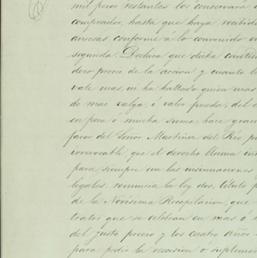 mil pesos restantes los conservará
comprador, hasta que haya
conforme á lo convenido
segunda. Declara que dicha
dero precio de la accion, y cuanto
vale mas, ni ha hallado quien mas
de mas valga ó valer pueda, del
en poca ó mucha suma hace
favor del Señor Martinez del Rio
irrevocable que el derecho llama
para siempre con las insinuaciones
legales, renuncia la ley dos, titulo
de la Novisima Recopilacion, que
tratos que se celebran en mas ó
del justo precio y los cuatro años
para pedir la rescision ó suplemento